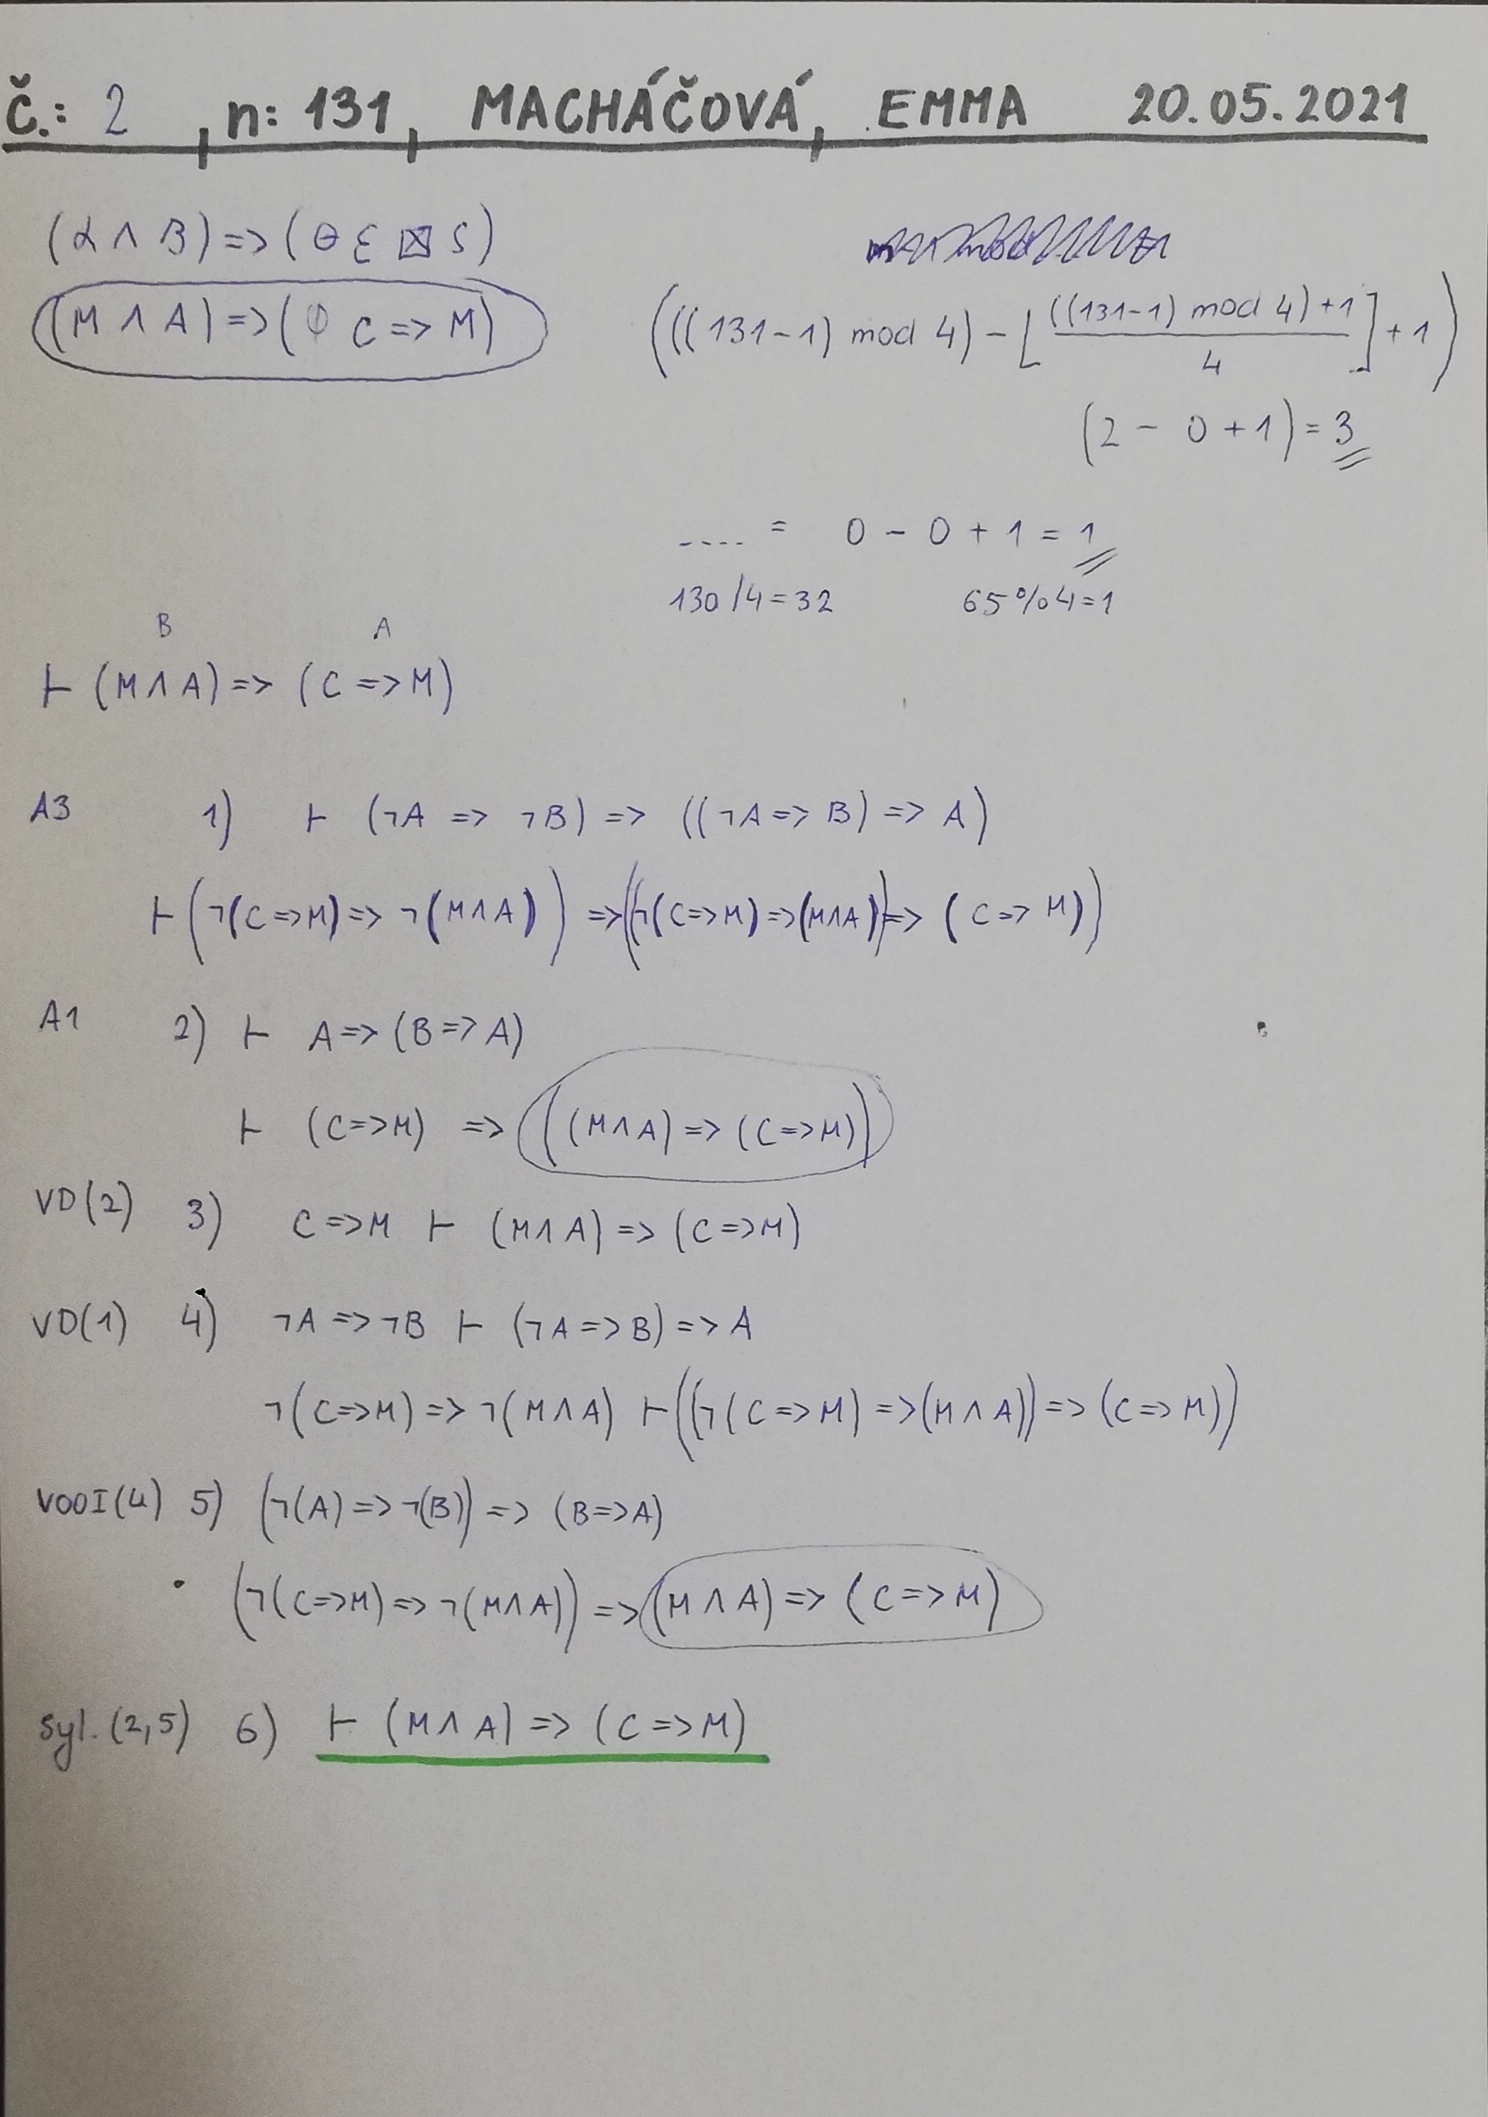 Č.: 2, n: 131, MACHÁČOVÁ, EMMA 20.05.2021
(α ∧ B) => (Θ ε ⊠ S)
(M ∧ A) => ( C => M)
(((131-1) mod 4) - ⌊((131-1) mod 4)+1 / 4⌋ + 1)
(2 - 0 + 1) = 3
.... = 0 - 0 + 1 = 1
130/4=32 65%4=1
B A
⊢ (M ∧ A) => (C => M)
A3 1) ⊢ (¬A => ¬B) => ((¬A => B) => A)
⊢ (¬(C => M) => ¬(M ∧ A)) => ((¬(C => M) => (M ∧ A)) => (C => M))
A1 2) ⊢ A => (B => A)
⊢ (C => M) => ((M ∧ A) => (C => M))
VD(2) 3) C => M ⊢ (M ∧ A) => (C => M)
VD(1) 4) ¬A => ¬B ⊢ (¬A => B) => A
¬(C => M) => ¬(M ∧ A) ⊢ ((¬(C => M) => (M ∧ A)) => (C => M))
VOOI(4) 5) (¬(A) => ¬(B)) => (B => A)
(¬(C => M) => ¬(M ∧ A)) => (M ∧ A) => (C => M)
Syl. (2,5) 6) ⊢ (M ∧ A) => (C => M)